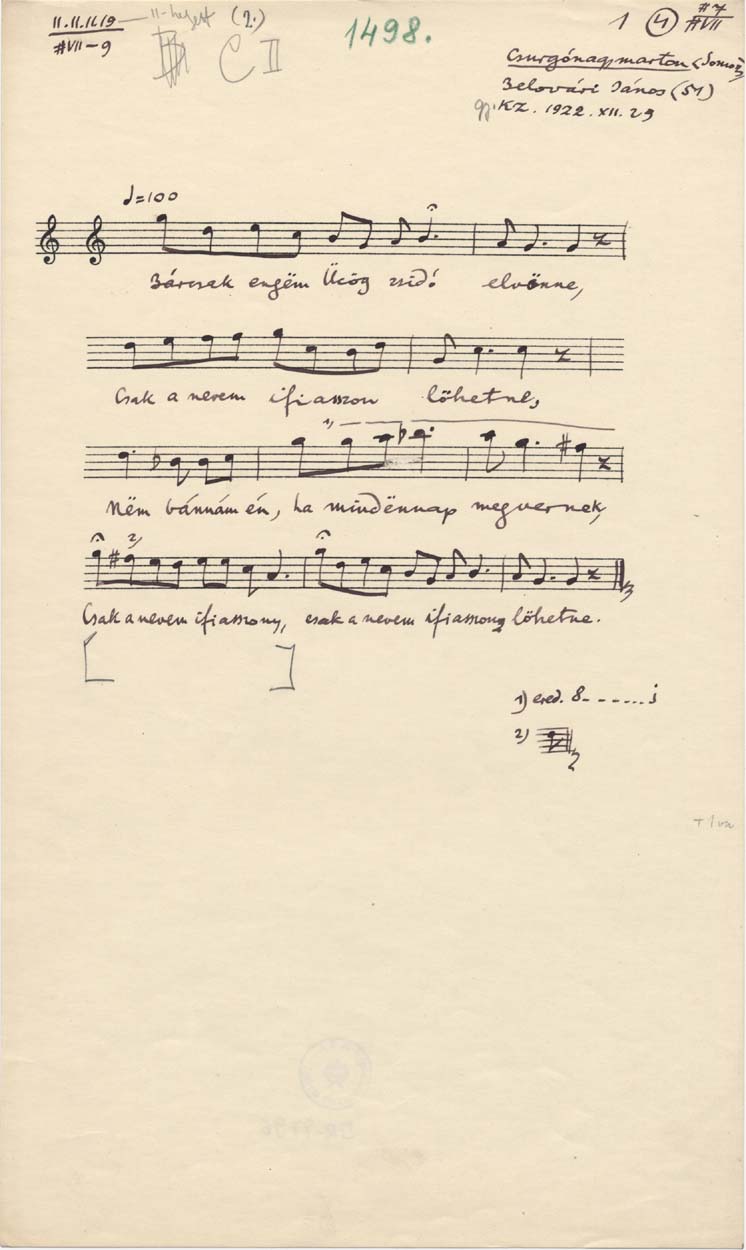 11.11.11.19 — 11-helyett (2.)
#VII-9
C II
1498.
1 (4) #7
#VII
Csurgónagymarton (Somogy)
Belovári János (51)
gy. KZ. 1922.XII.29
♩=100
Bárcsak engëm Ücög zsidó elvënne,
Csak a nevem ifiasszon löhetne,
1)
Nëm bánnám én, ha mindënnap megvernek,
2)
Csak a nevem ifiasszony, csak a nevem ifiasszony löhetne.
1) ered. 8- - - - ... j
2)